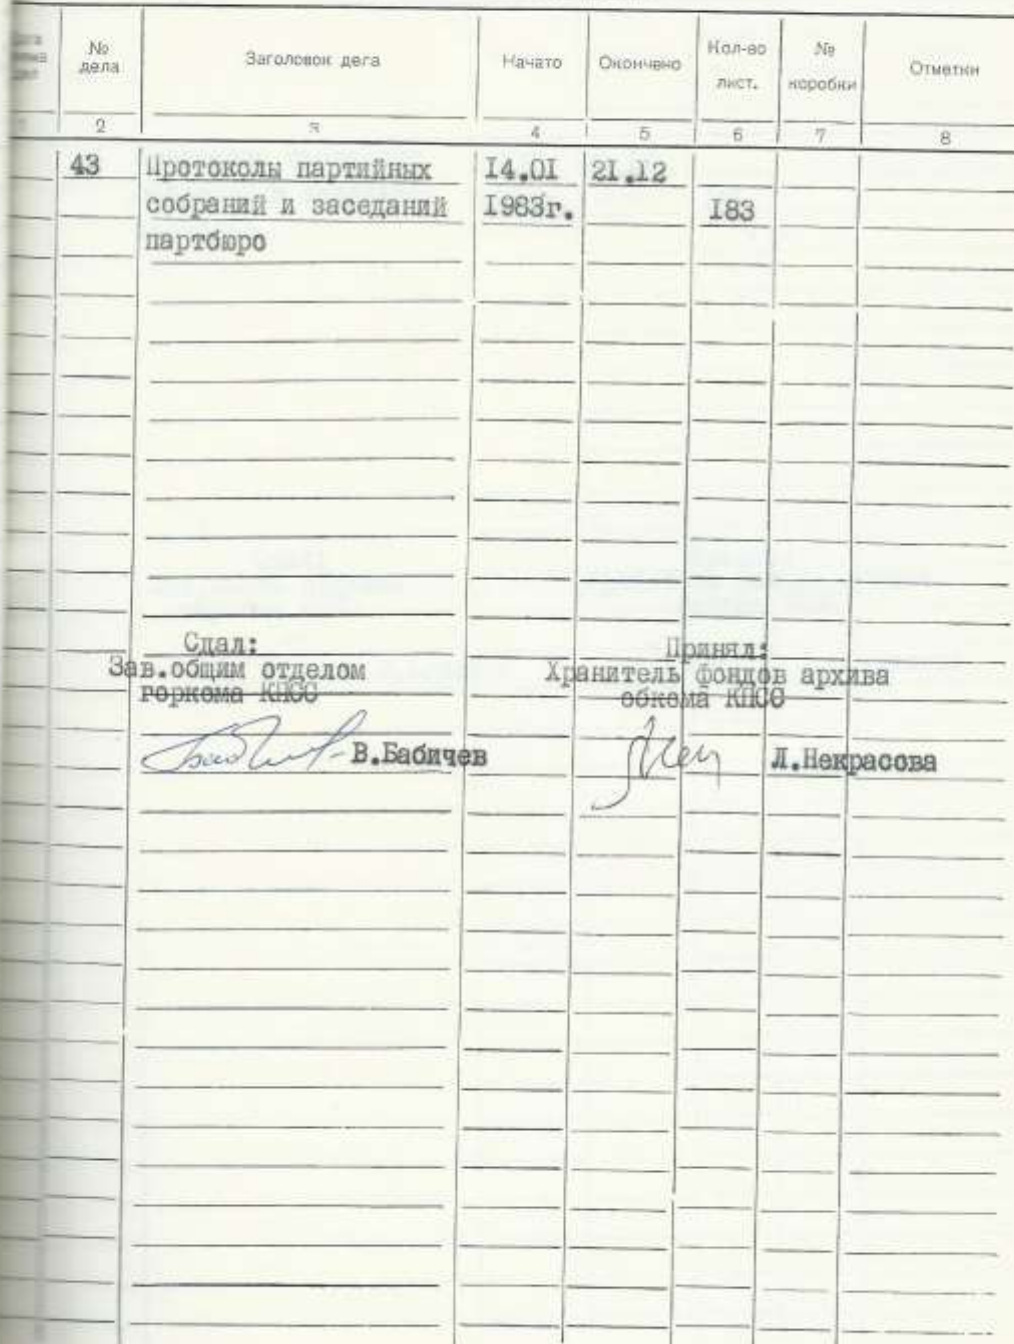 № дела
Заголовок дела
Начато
Окончено
Кол-во лист.
№ коробки
Отметки
2 3 4 5 6 7 8
43 Протоколы партийных I4.0I 2I.I2
собраний и заседаний I983г. I83
партбюро
Сдал:
Зав.общим отделом
горкома КПСС
В.Бабичев
Принял:
Хранитель фондов архива
обкома КПСС
Л.Некрасова